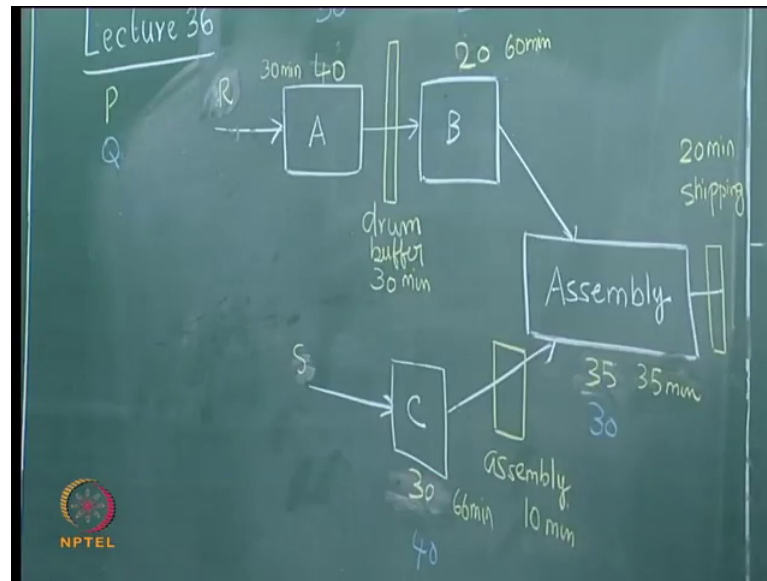 Lecture 36
P
Q
R
30min 40
A
20 60min
B
drum
buffer
30 min
20min
shipping
Assembly
35 35min
30
S
C
30 66min
40
assembly
10 min
NPTEL